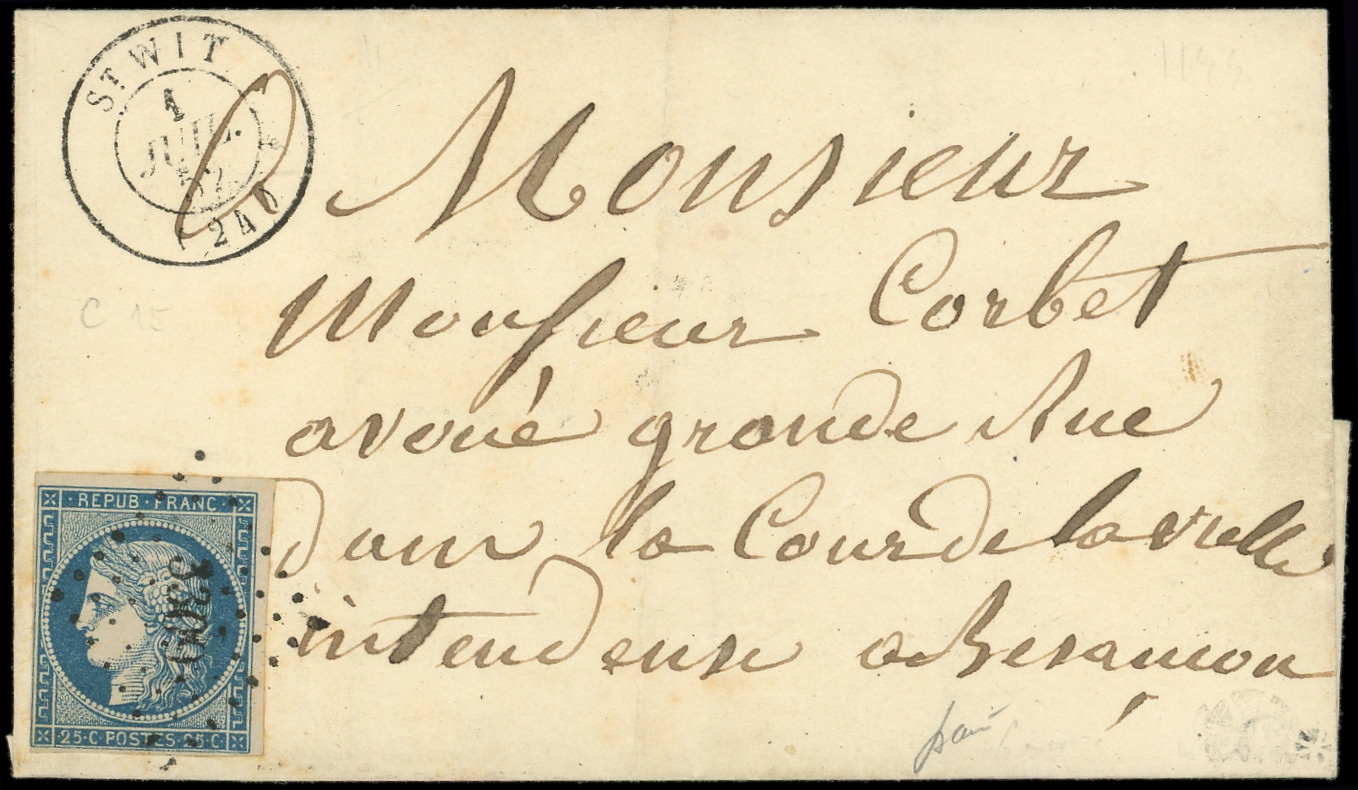 ST WIT
1
JUIL.
52
(24)
Monsieur
Monsieur Corbet
avoué grande Rue
dans la Cour de la vielle
intendense a Besançon
REPUB·FRANC
25·C·POSTES·25·C
C 15